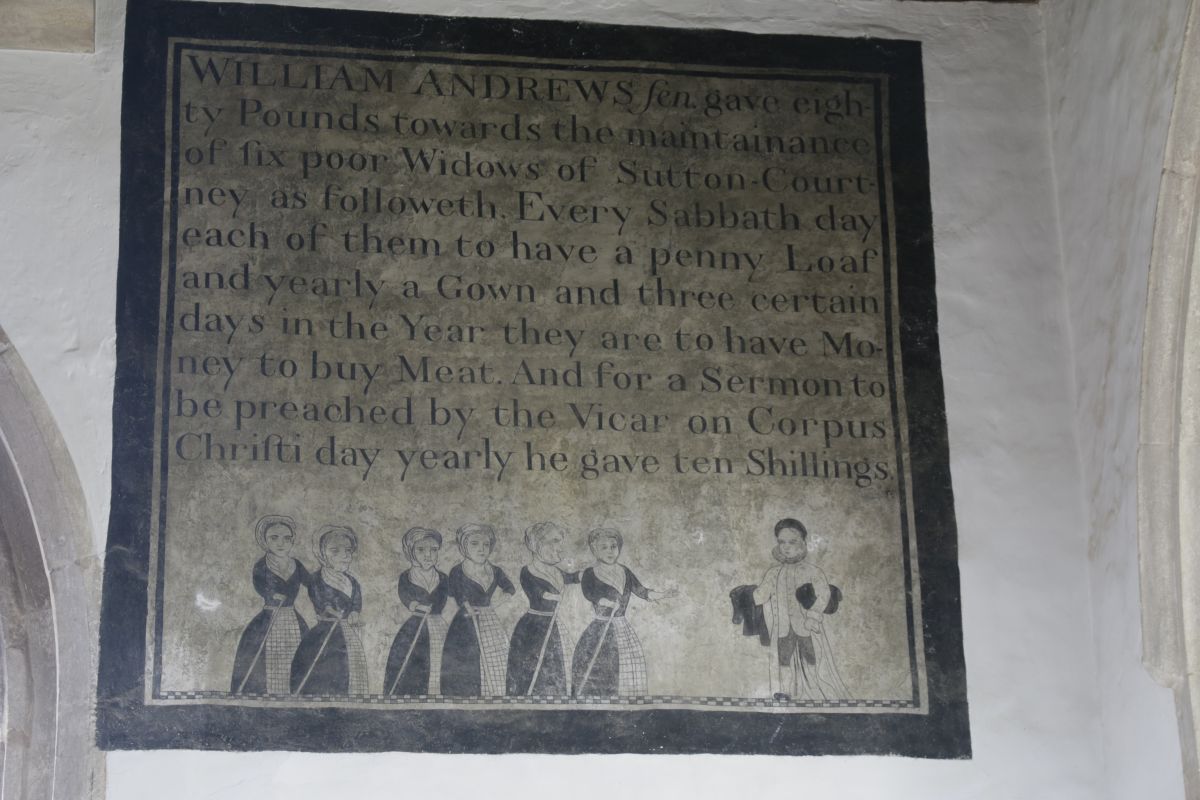 WILLIAM ANDREWS ſen. gave eigh-
ty Pounds towards the maintainance
of ſix poor Widows of Sutton-Court-
ney, as followeth. Every Sabbath day
each of them to have a penny Loaf
and yearly a Gown and three certain
days in the Year they are to have Mo-
ney to buy Meat. And for a Sermon to
be preached by the Vicar on Corpus
Chriſti day yearly he gave ten Shillings.